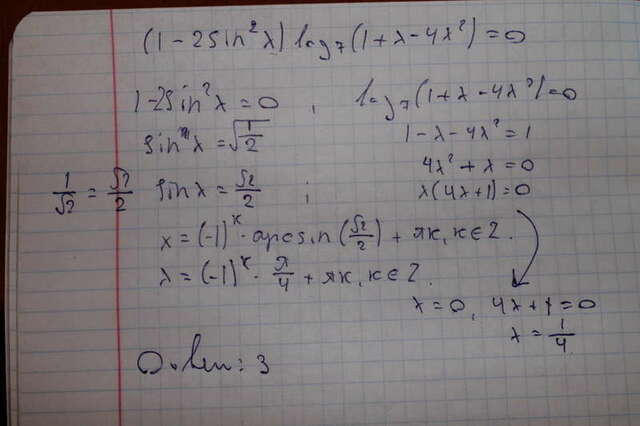 (1 - 2sin²x) log₇(1 + x - 4x²) = 0
1 - 2sin²x = 0 , log₇(1 + x - 4x²) = 0
sin²x = √(1/2)
1 - x - 4x² = 1
4x² + x = 0
1/√2 = √2/2 sin x = √2/2 ; x(4x + 1) = 0
x = (-1)ᵏ · arcsin(√2/2) + πk, k ∈ Z.
x = (-1)ᵏ · π/4 + πk, k ∈ Z.
x = 0, 4x + 1 = 0
x = 1/4
Ответ: 3